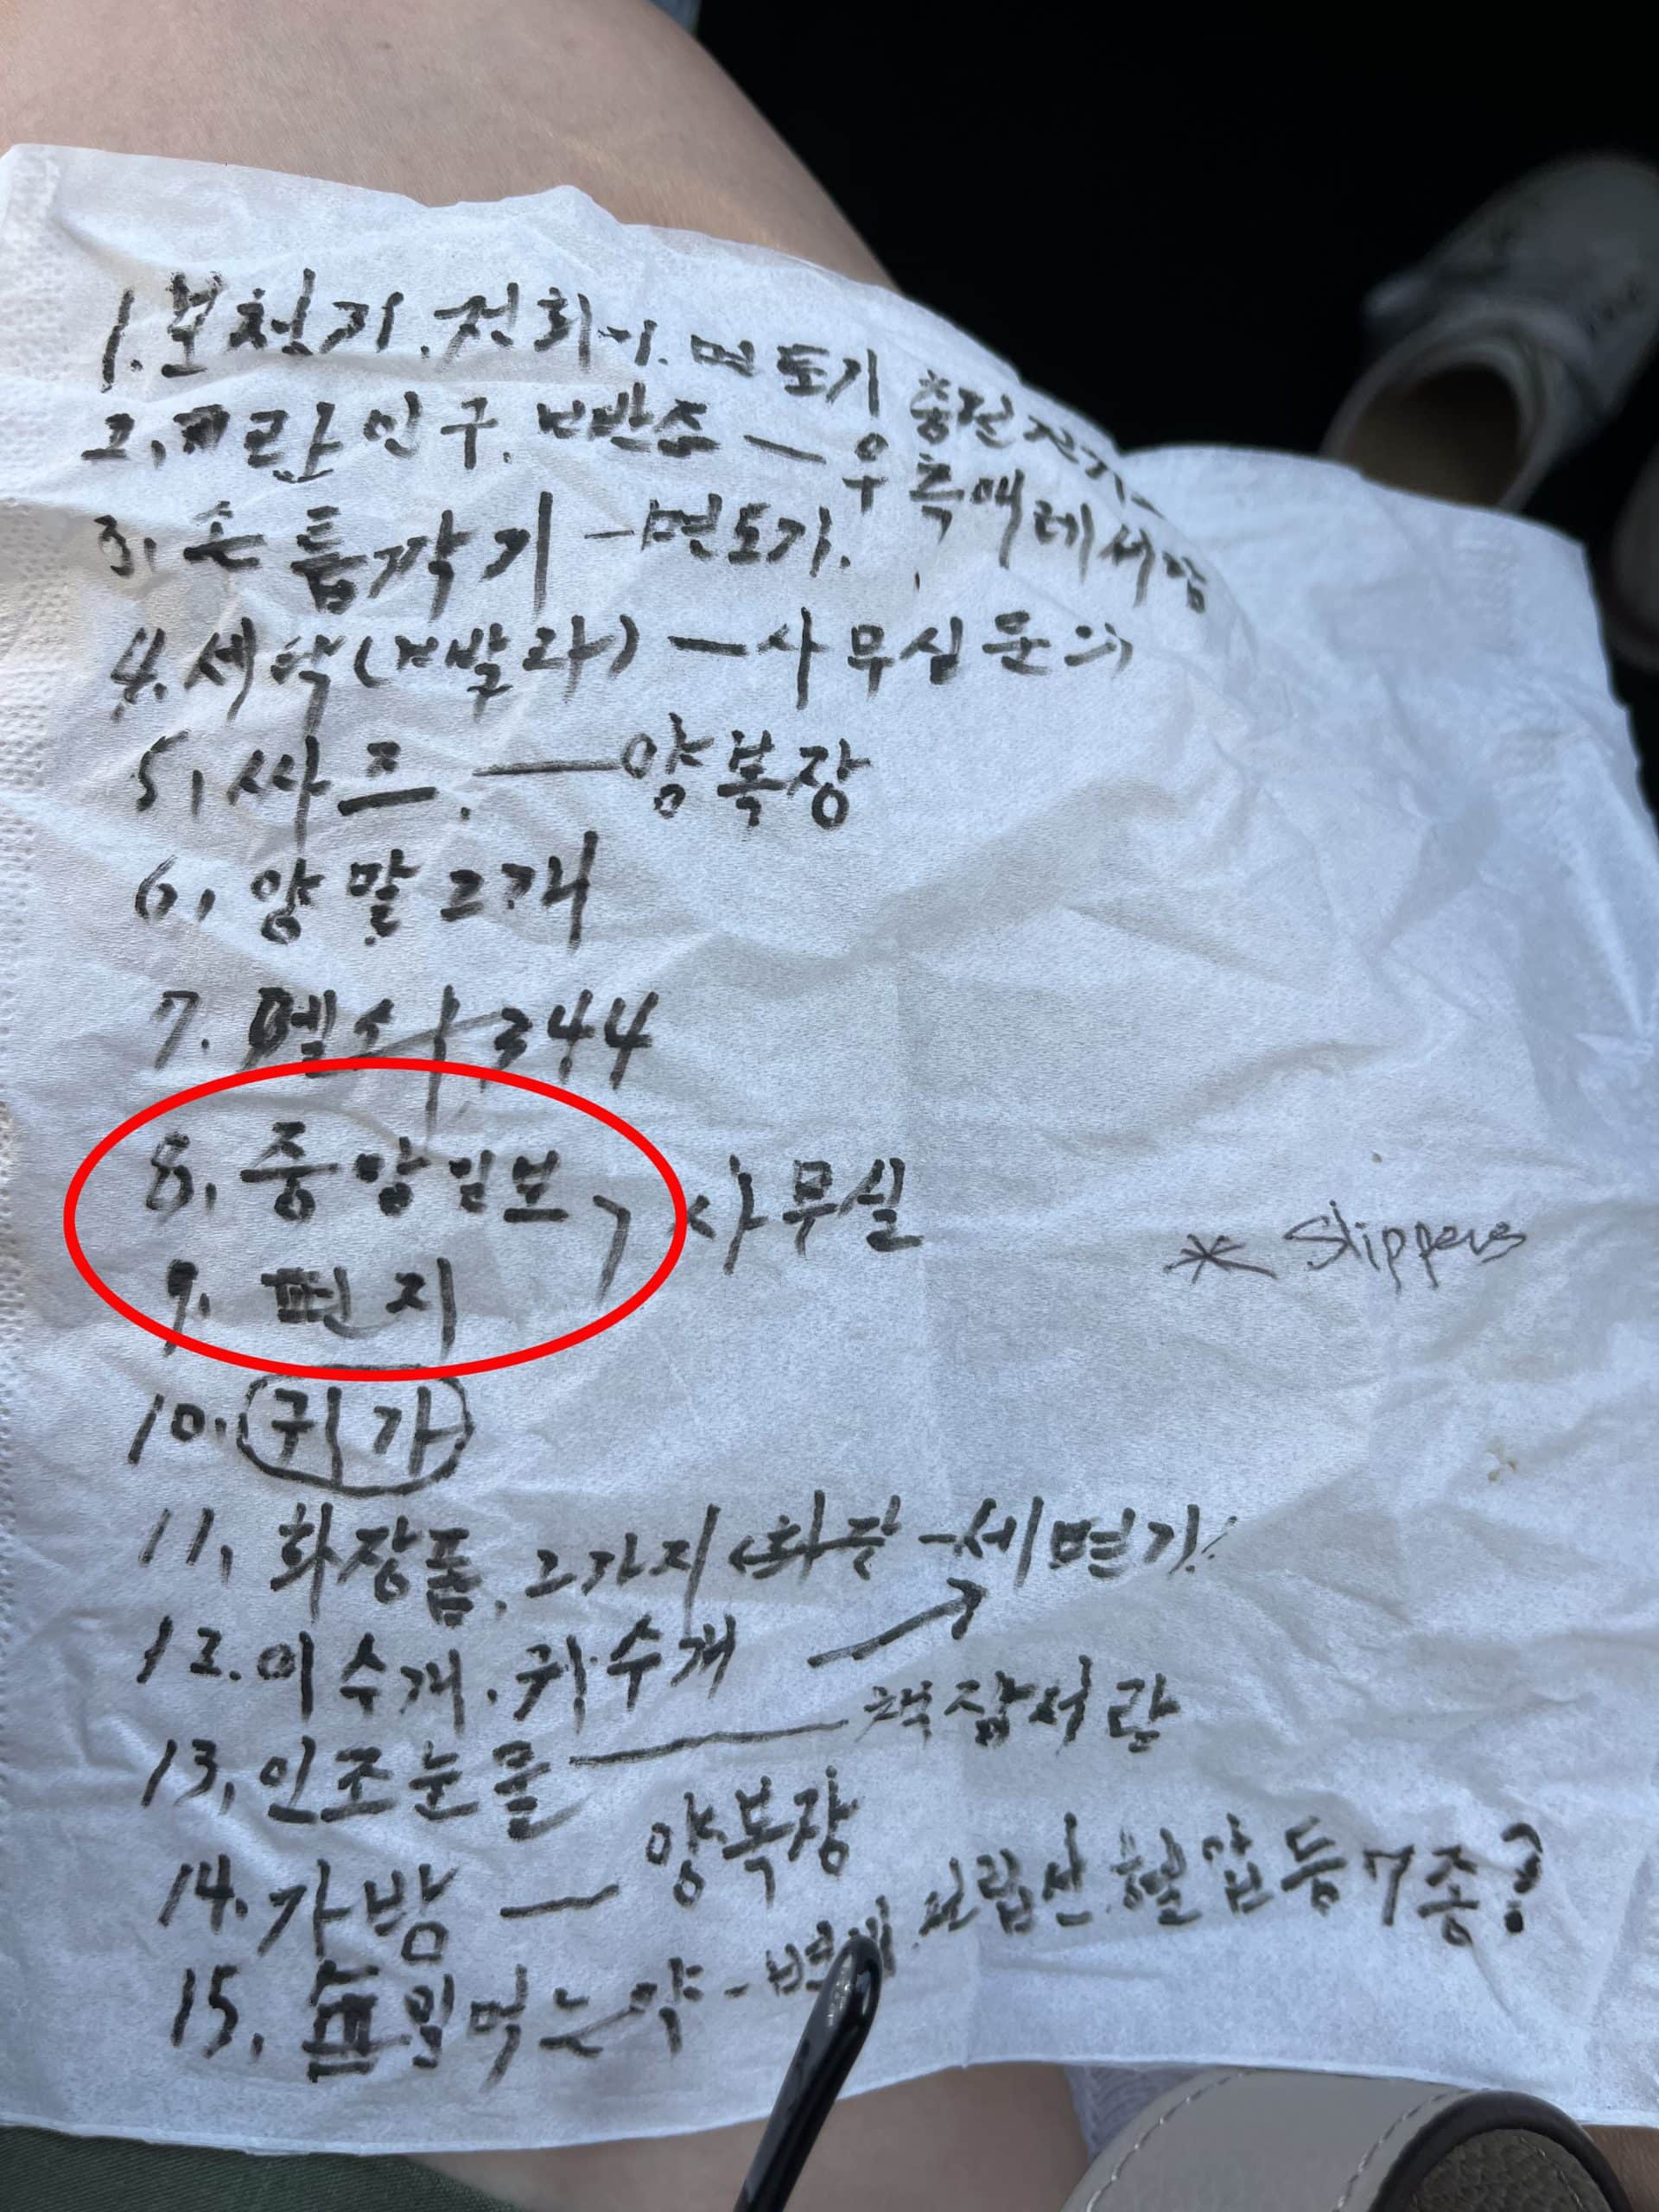 1. 보청기. 전화기. 면도기 충전
2. 파란 인구. 반주 — 우측
3. 손톱깎기 — 면도기.
4. 세탁 ( ) — 사무실 문의
5, 싸즈. — 양복장
6, 양말 2개
7. 펜 344
8, 중앙일보 사무실
* Slippers
9. 편지
10. 귀가
11, 화장품. 2가지 — 세면기
12. 이수개. 귀수개
13, 인조눈물 — 책잡서랍
14. 가방 — 양복장
15, 매일 먹는 약 - 전립선. 혈압 등 7종?